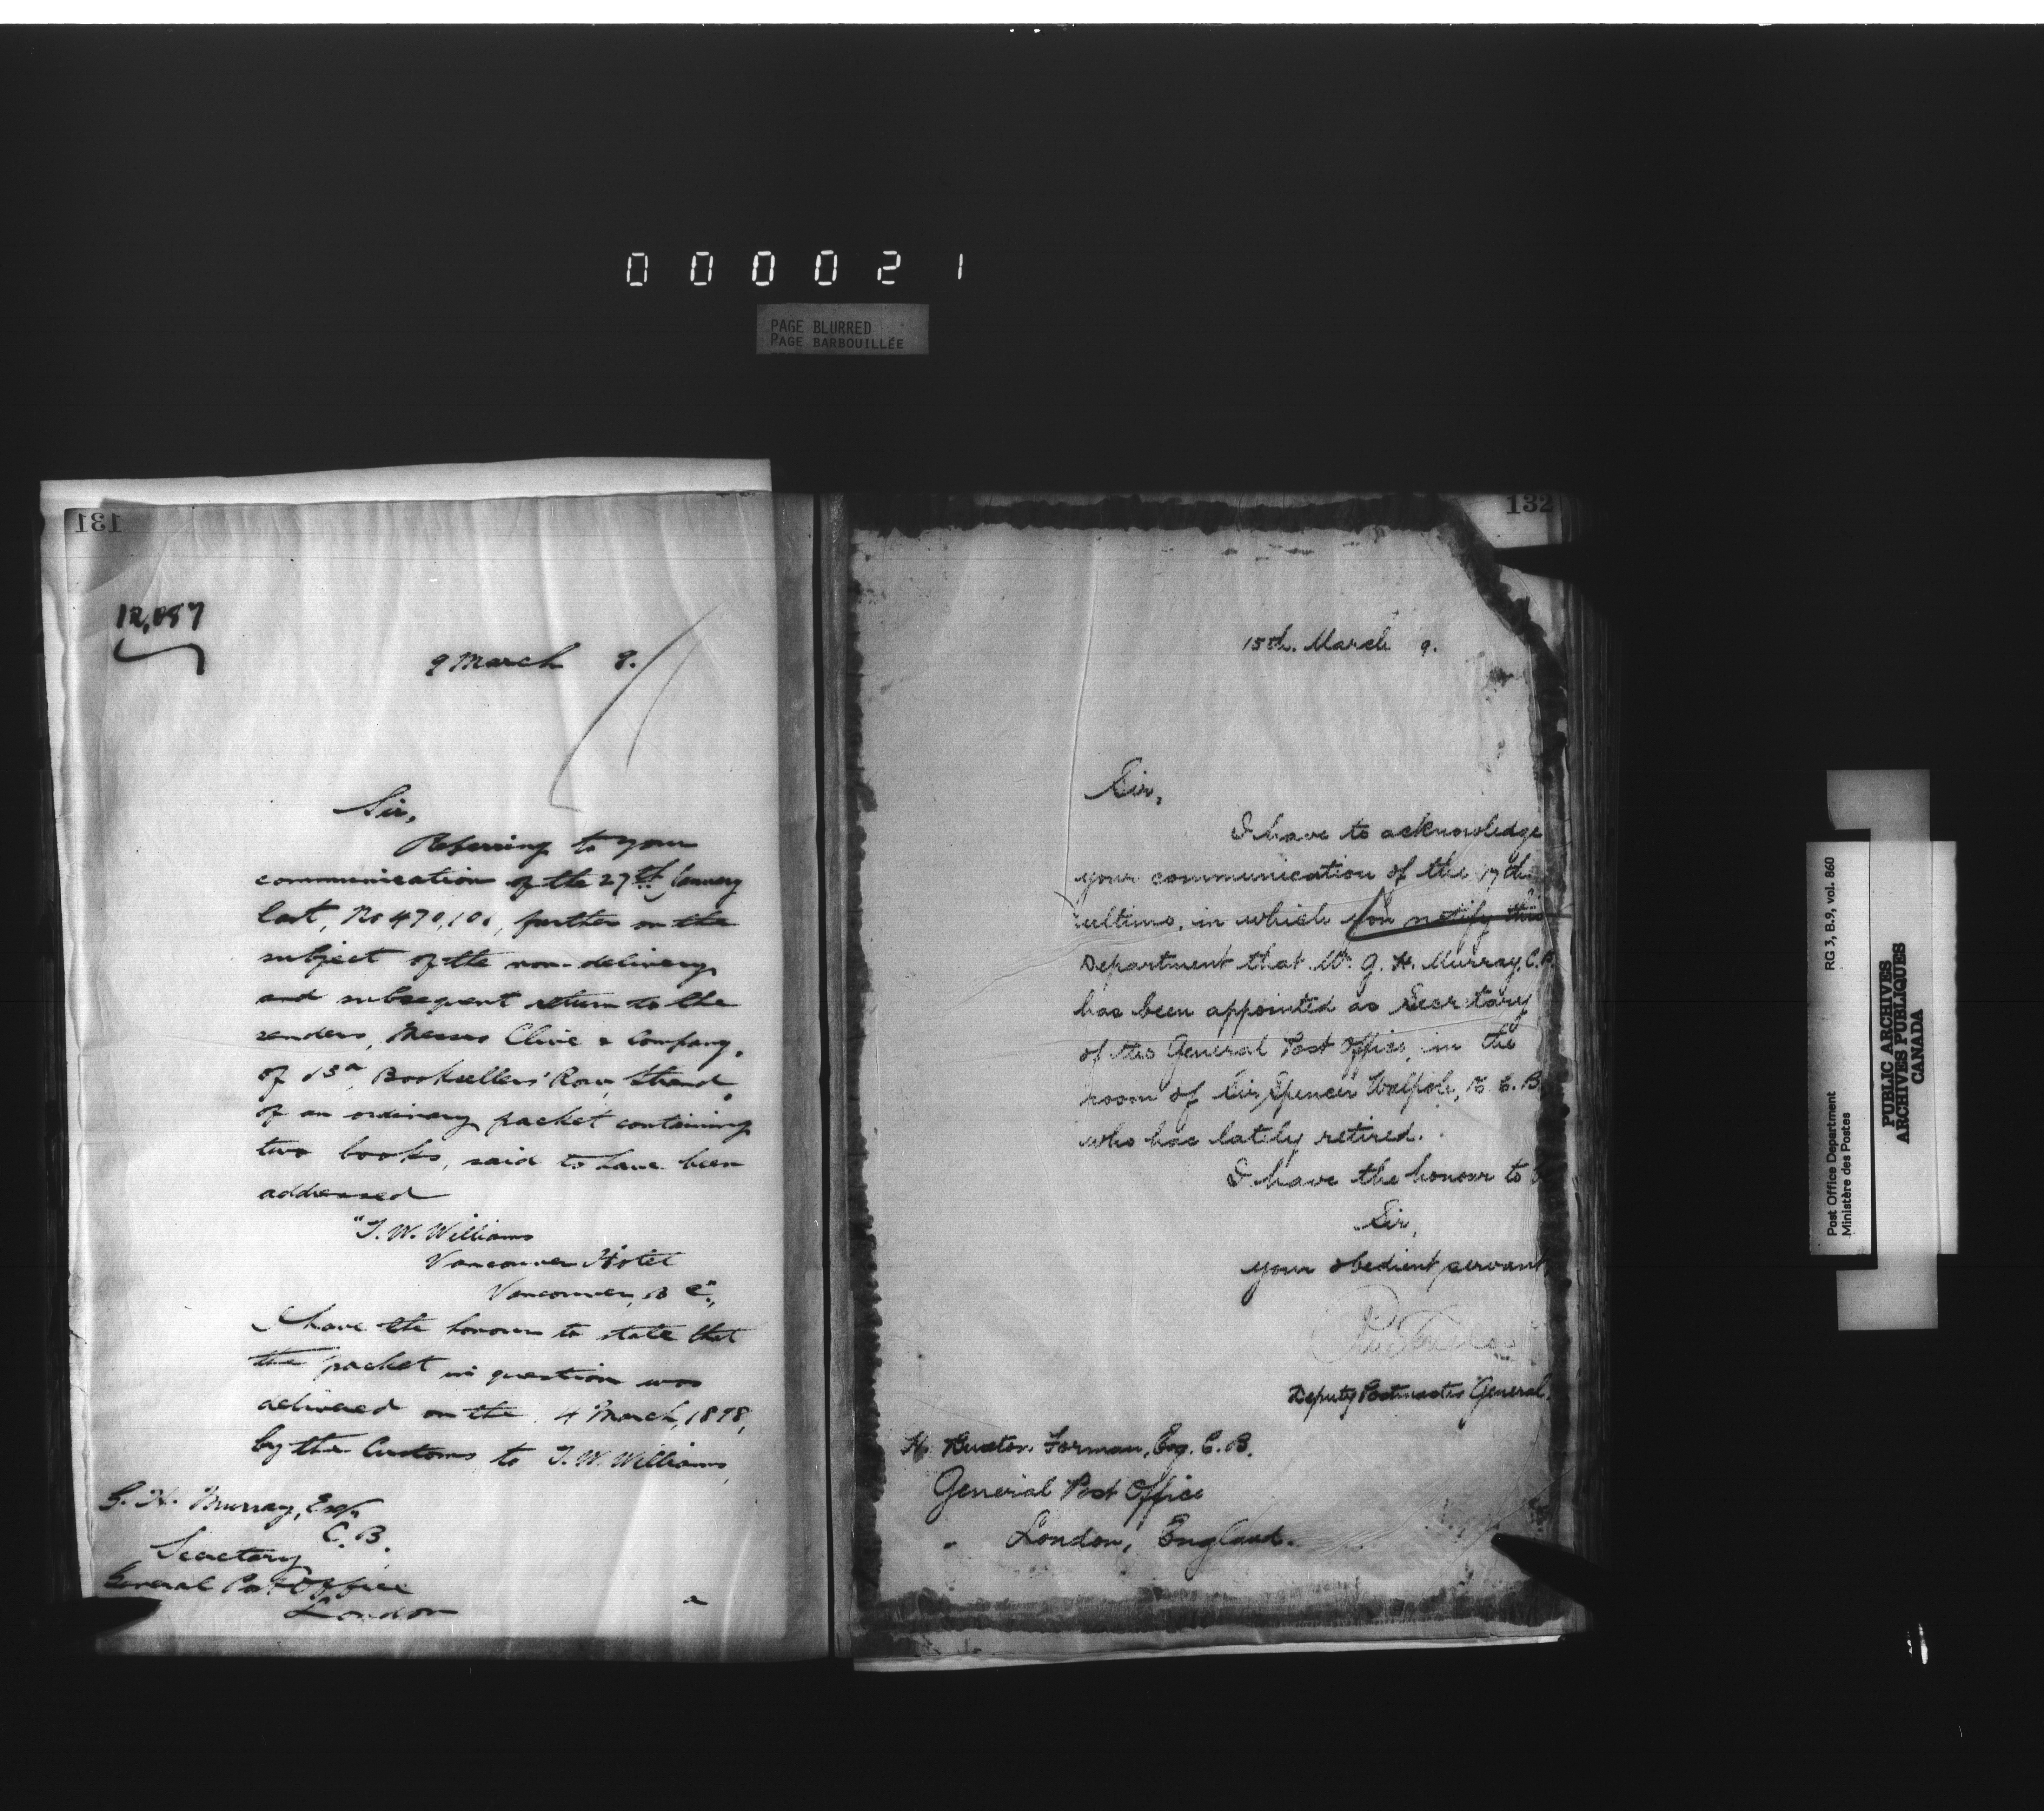 000021
PAGE BLURRED
PAGE BARBOUILLÉE
131
12,087
9 March 8.
Sir,
Referring to your
communication of the 27th January
last, No 470,101, further on the
subject of the non-delivery
and subsequent return to the
senders, Messrs Clive & Company,
of 13a, Booksellers' Row, Strand,
of an ordinary packet containing
two books, said to have been
addressed
"T. W. Williams
Vancouver Hotel
Vancouver, B C",
I have the honour to state that
the packet in question was
delivered on the 4 March, 1898,
by the Customs to T. W. Williams,
G. H. Murray, Esq,
C.B.
Secretary
General Post Office
London
132
15th. March 9.
Sir,
I have to acknowledge
your communication of the 17th
ultimo, in which you notify this
Department that Mr. G. H. Murray, C.B.
has been appointed as Secretary
of the General Post Office, in the
room of Sir Spencer Walpole, K. C. B.
who has lately retired.
I have the honour to
Sir,
your obedient servant,
Deputy Postmaster General.
H. Buxton Forman, Esq. C. B.
General Post Office
London, England.
Post Office Department RG 3, B.9, vol. 860
Ministère des Postes
PUBLIC ARCHIVES
ARCHIVES PUBLIQUES
CANADA